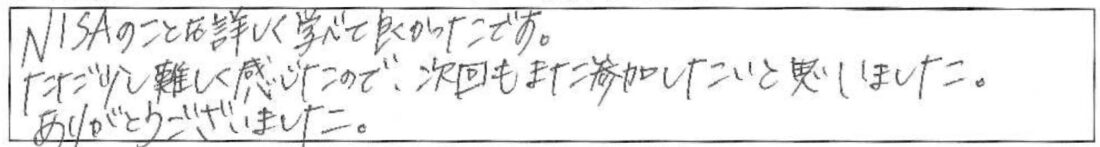 NISAのことを詳しく学べて良かったです。
ただ少し難しく感じたので、次回もまた参加したいと思いました。
ありがとうございました。